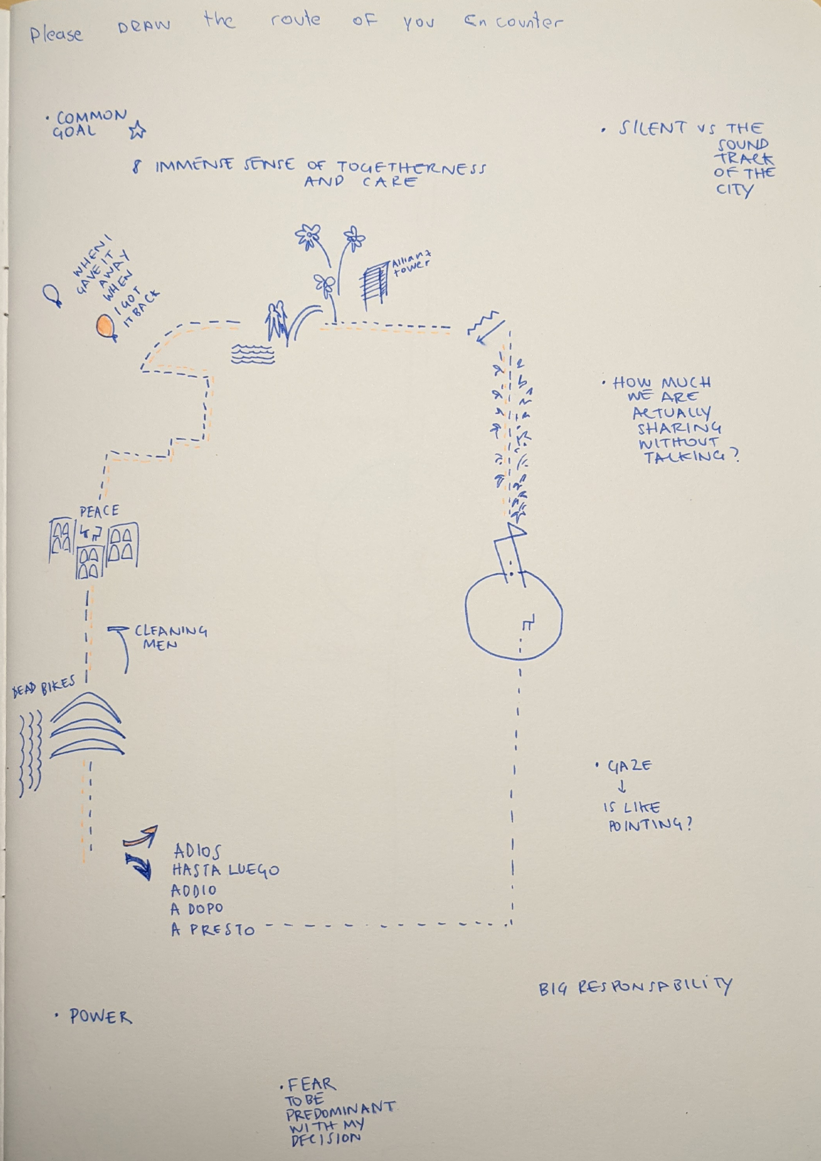 Please DRAW the route OF you Encounter
• COMMON
GOAL
& IMMENSE SENSE OF TOGETHERNESS
AND CARE
• SILENT VS THE
SOUND
TRACK
OF THE
CITY
WHEN I
GAVE IT
AWAY
WHEN
I GOT
IT BACK
Allianz
tower
• HOW MUCH
WE ARE
ACTUALLY
SHARING
WITHOUT
TALKING?
PEACE
CLEANING
MEN
DEAD BIKES
• GAZE
↓
IS LIKE
POINTING?
ADIOS
HASTA LUEGO
ADDIO
A DOPO
A PRESTO
BIG RESPONSABILITY
• POWER
• FEAR
TO BE
PREDOMINANT
WITH MY
DECISION